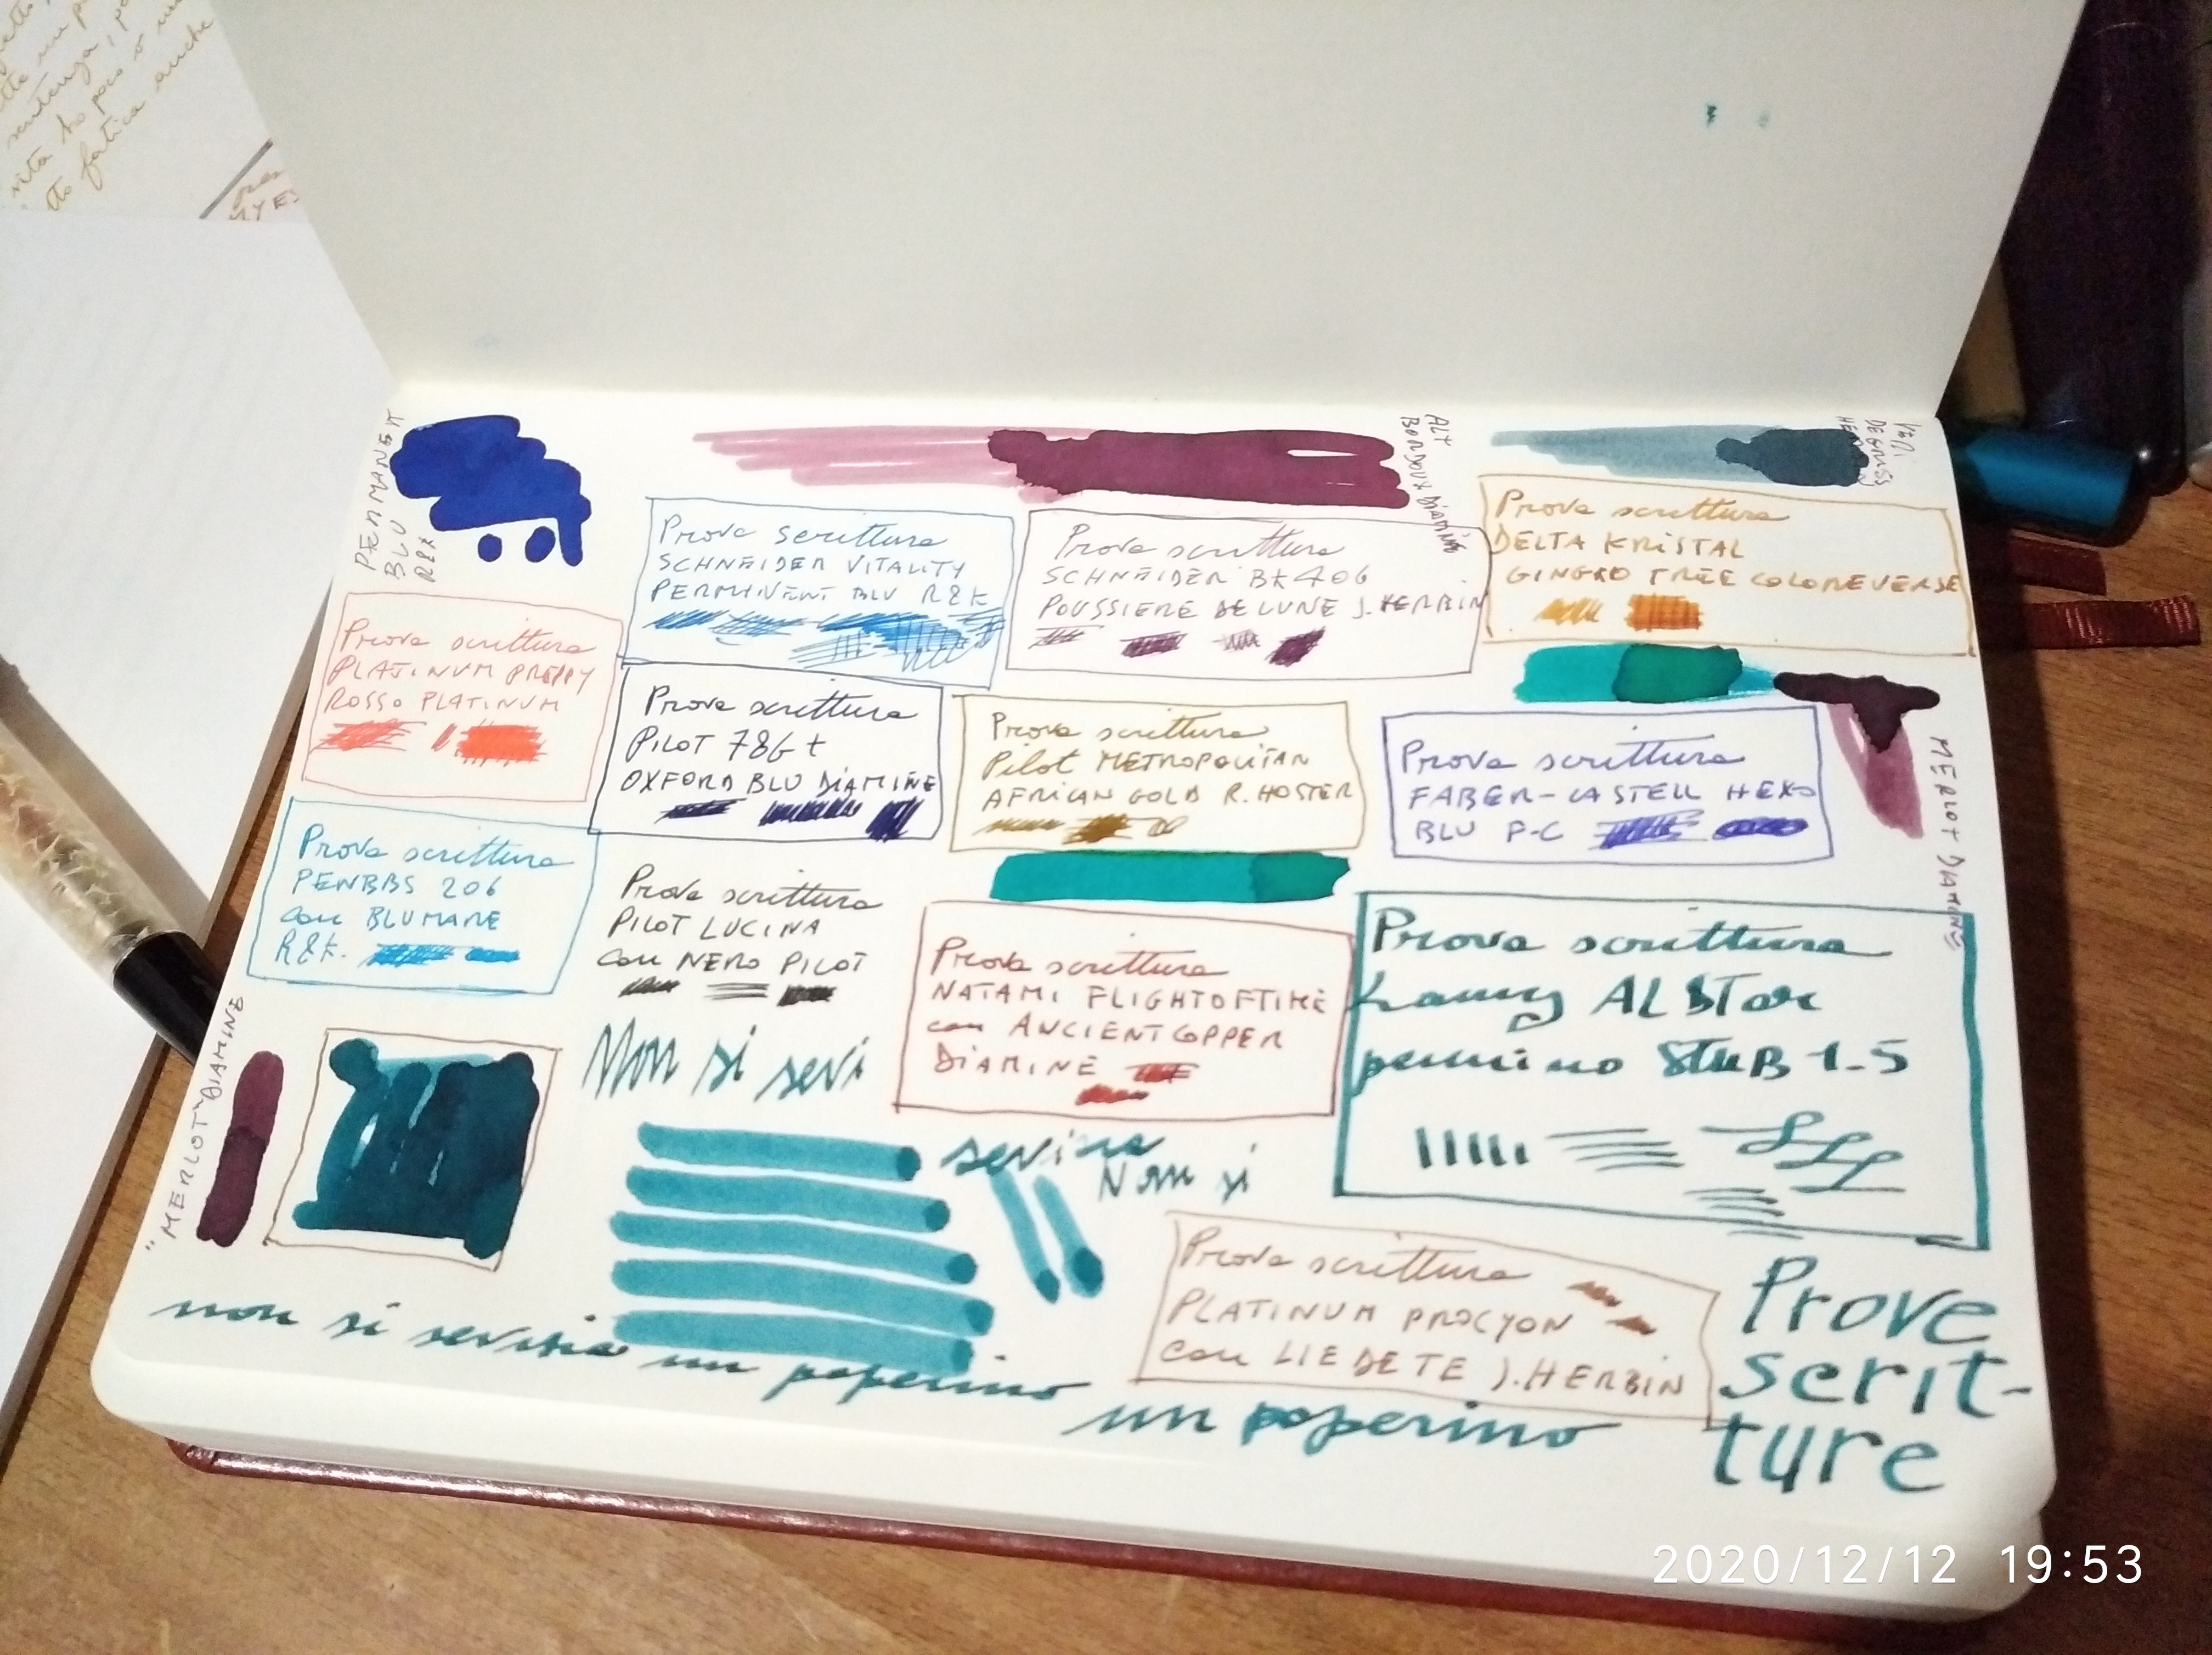 PERMANENT
BLU
R&K
ALT
BORDOUX DIAMINE
VERT
DE GRIS
Prova scrittura
SCHNEIDER VITALITY
PERMINENT BLU R&K
Prova scrittura
SCHNEIDER BK406
POUSSIERE DE LUNE J. HERBIN
Prova scrittura
DELTA KRISTAL
GINGKO TREE COLOREVERSE
Prova scrittura
PLATINUM PREPPY
ROSSO PLATINUM
Prova scrittura
PILOT 78G +
OXFORD BLU DIAMINE
Prova scrittura
Pilot METROPOLITAN
AFRICAN GOLD R. HOSTER
Prova scrittura
FABER-CASTELL HEXO
BLU F-C
MERLOT DIAMINE
Prova scrittura
PENBBS 206
con BLU MARE
R&K.
Prova scrittura
PILOT LUCINA
con NERO PILOT
Prova scrittura
NATAMI FLIGHTOFTIME
con ANCIENT COPPER
DIAMINE
Prova scrittura
Lamy ALSTar
pennino STUB 1.5
"MERLOT" DIAMINE
Non si sevi
sevizia
Non si
Prova scrittura
PLATINUM PROCYON
con LIE DE TE J. HERBIN
non si sevizia un paperino
un paperino
Prove
scrit-
ture
2020/12/12 19:53